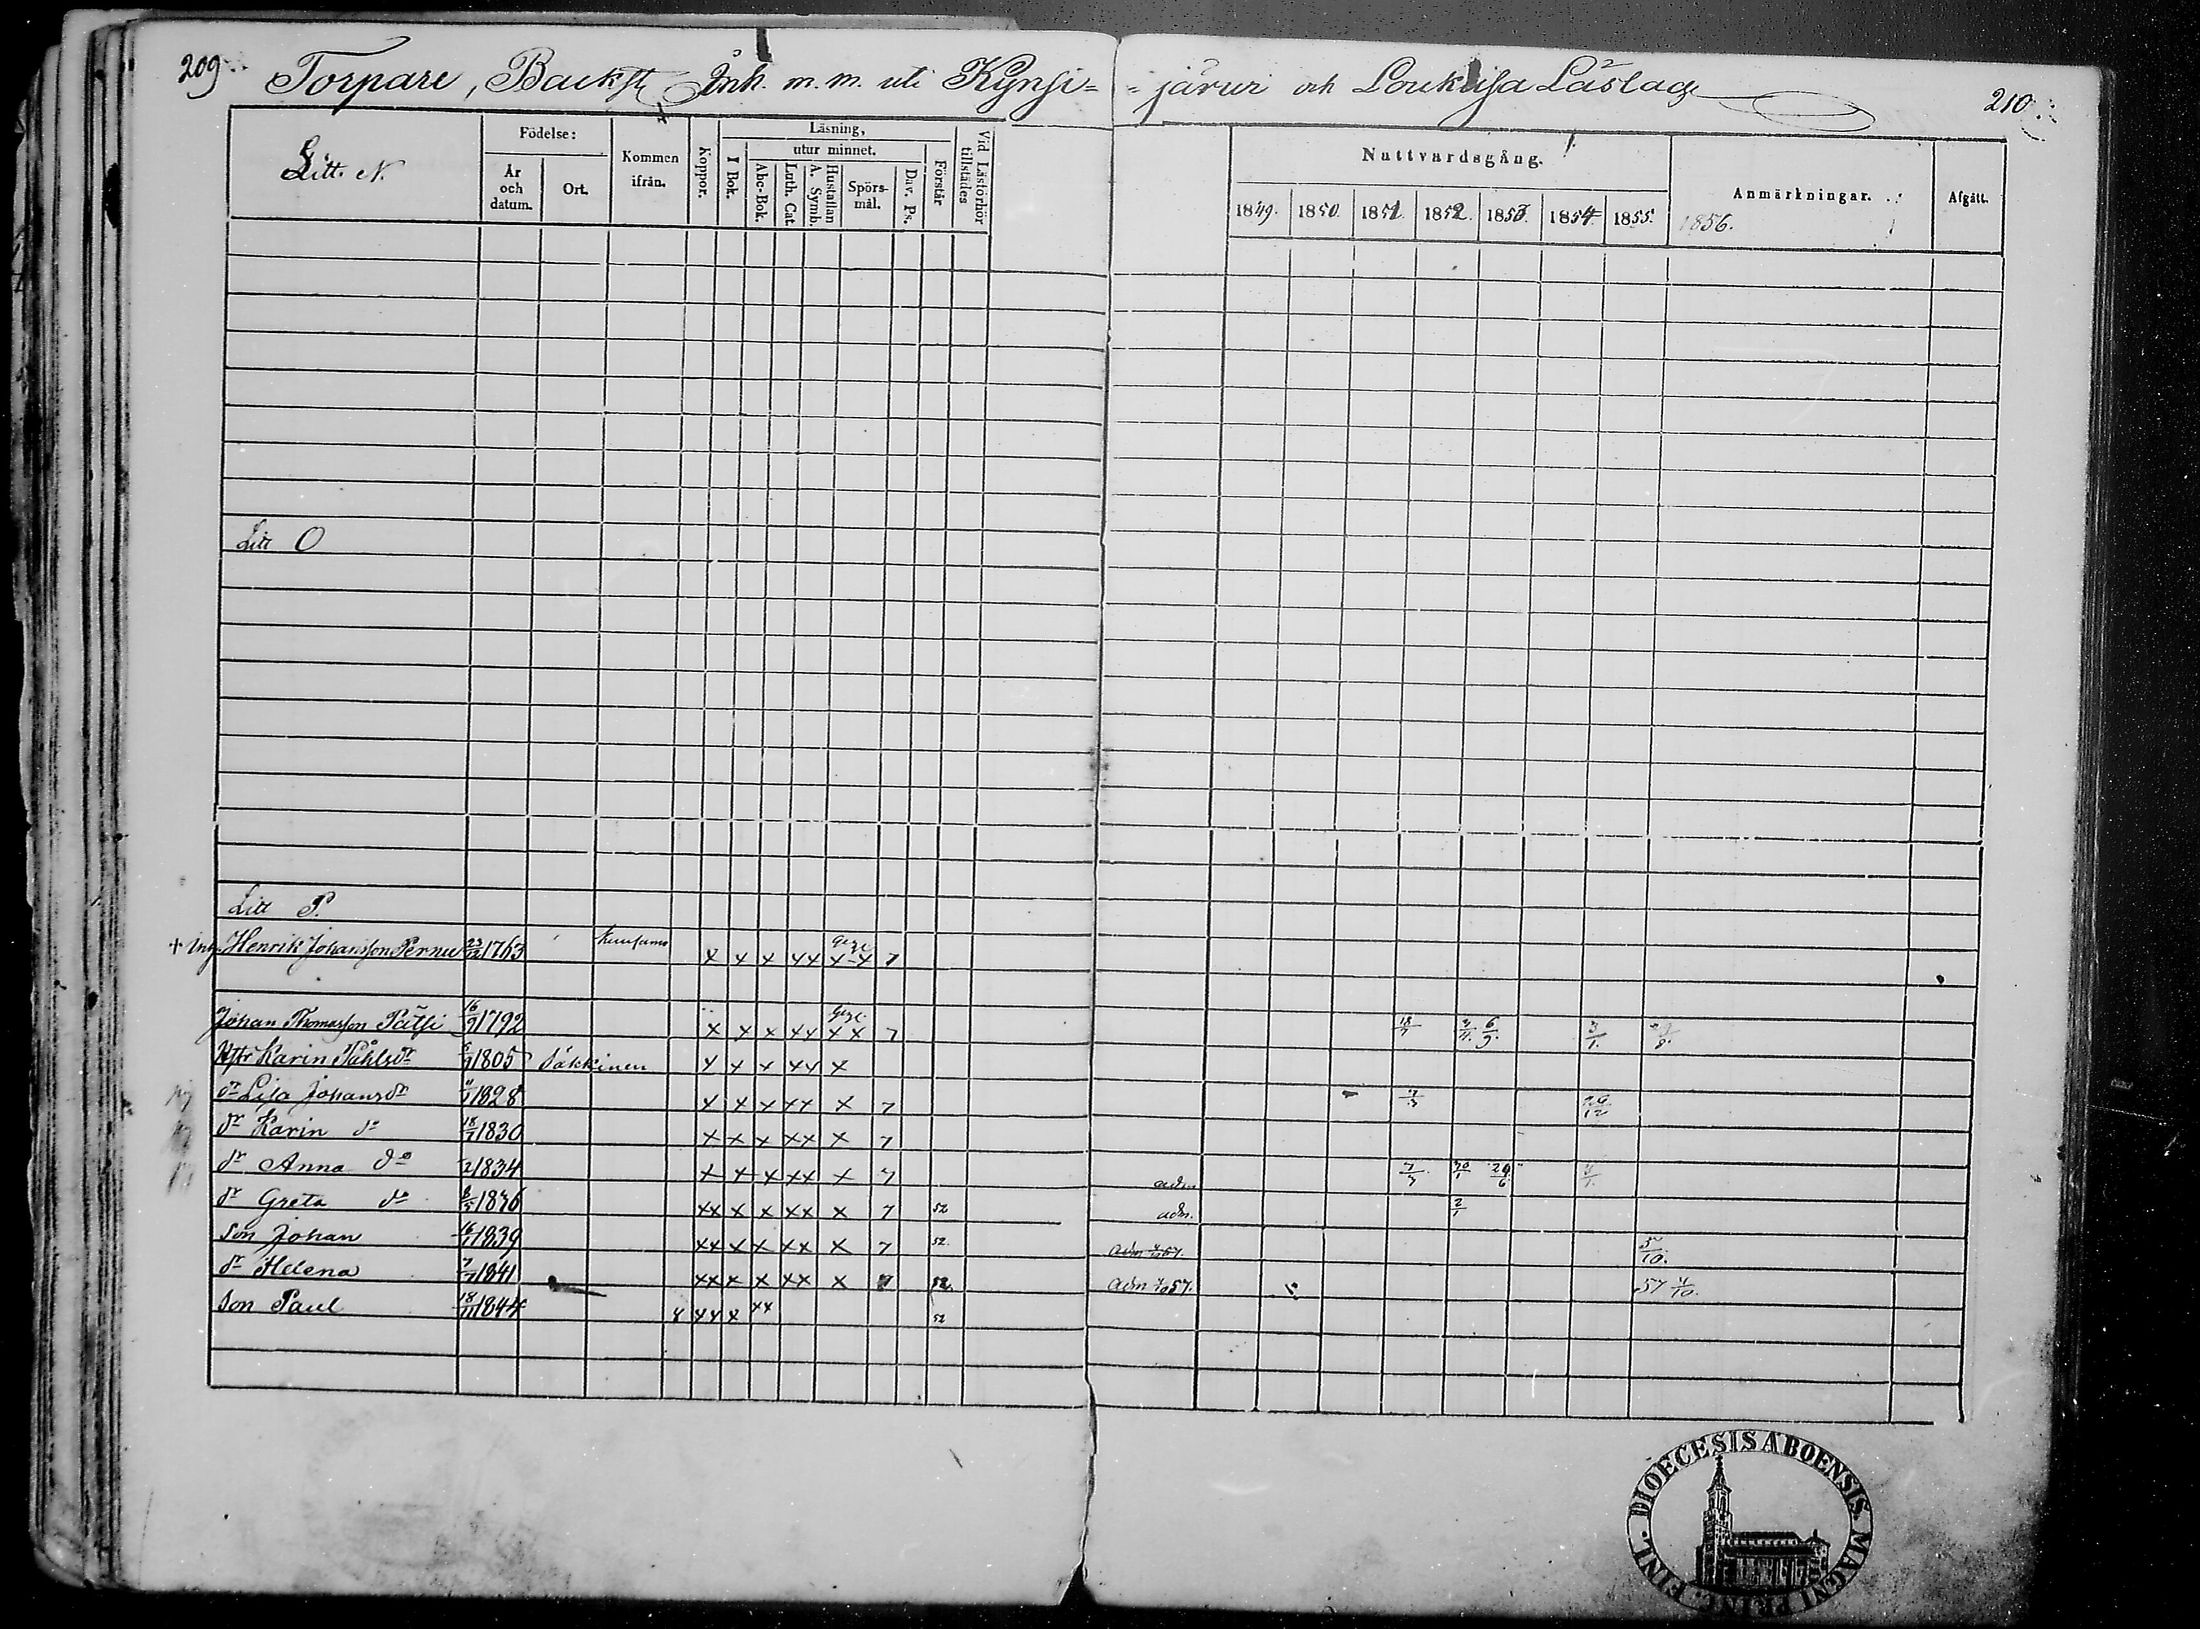 209. Torpare, Backst Inh. m. m. uti Kynsi=
=järwi och Loukusa Läslag 210
Litt. N.
Födelse:
År och datum.
Ort.
Kommen ifrån.
Koppor.
Läsning,
I Bok.
utur minnet.
Abc-Bok.
Luth. Cat.
Hustaflan A. Symb.
Spörsmål.
Dav. Ps.
Förstår
Vid Läsförhör tillstädes
Nattvardsgång.
1849. 1850. 1851. 1852. 1853. 1854. 1855.
Anmärkningar.
1856.
Afgått.
Litt O
Litt P.
+ Henrik Johansson Pernu 23/12 1763 Kuusamo x x x xx x x 7
Johan Thomasson Pätsi 16/9 1792 x x x xx x x 7 18/7
Karin Påhlsdr 1805 Säkkinen x x x xx x
dr Lisa Johansdr 1828 x x x xx x 7 29/12
dr Karin do 18/7 1830 x x x xx x 7
dr Anna do 1834 x x x xx x 7 adm.
dr Greta do 8/5 1836 xx x x xx x 7 52 adm. 2/1
Son Johan 1839 xx x x xx x 7 52 5/10.
dr Helena 7/7 1841 xx x x xx x 7 52. adm 57. 57 4/10.
Son Paul 18/11 1844 xx x xx 52
DIOECESIS ABOENSIS MAGNI PRINC. FINL.